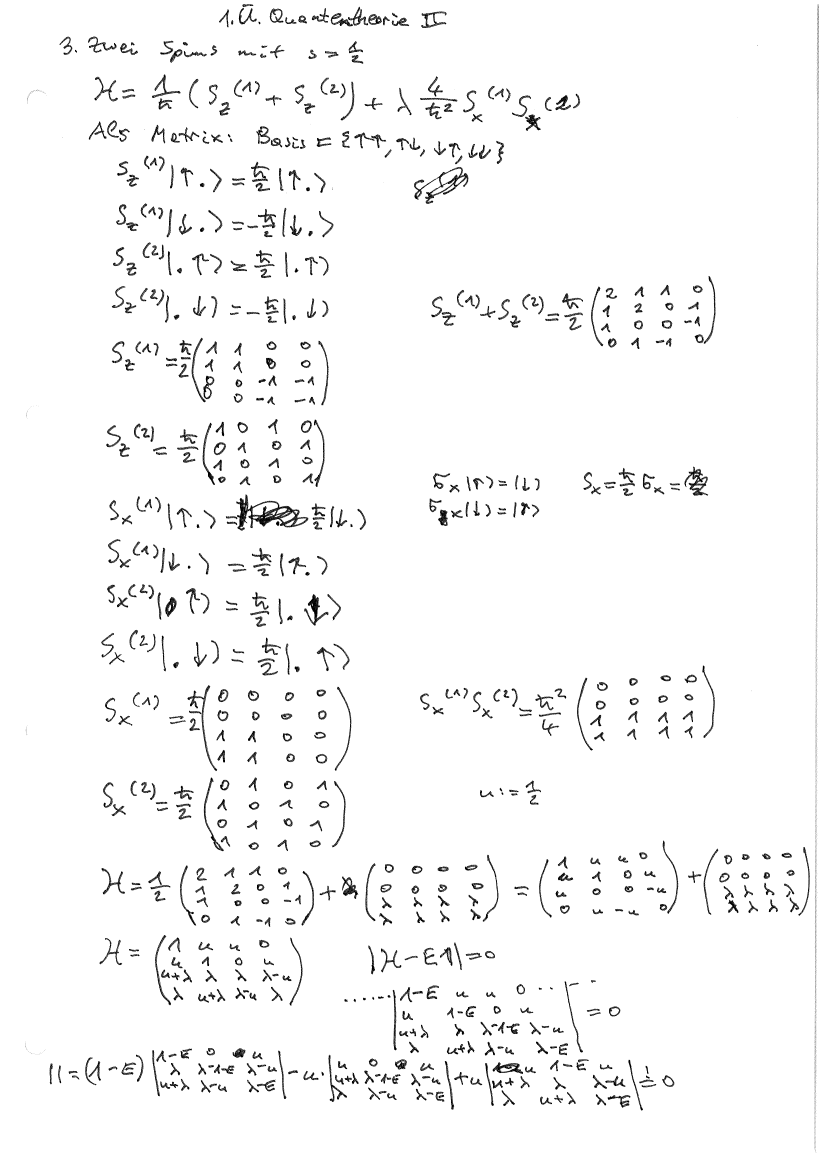 1. Ü. Quantentheorie II
3. Zwei Spins mit s = 1/2
H = 1/ħ (S_z^(1) + S_z^(2)) + λ 4/ħ² S_x^(1) S_x^(2)
Als Matrix: Basis = {↑↑, ↑↓, ↓↑, ↓↓}
S_z^(1) |↑.⟩ = ħ/2 |↑.⟩
S_z^(1) |↓.⟩ = -ħ/2 |↓.⟩
S_z^(2) |.↑⟩ = ħ/2 |.↑⟩
S_z^(2) |.↓⟩ = -ħ/2 |.↓⟩
S_z^(1) + S_z^(2) = ħ/2 (2 1 1 0
1 2 0 1
1 0 0 -1
0 1 -1 0)
S_z^(1) = ħ/2 (1 1 0 0
1 1 0 0
0 0 -1 -1
0 0 -1 -1)
S_z^(2) = ħ/2 (1 0 1 0
0 1 0 1
1 0 1 0
0 1 0 1)
σ_x |↑⟩ = |↓⟩ S_x = ħ/2 σ_x =
σ_x |↓⟩ = |↑⟩
S_x^(1) |↑.⟩ = ħ/2 |↓.⟩
S_x^(1) |↓.⟩ = ħ/2 |↑.⟩
S_x^(2) |.↑⟩ = ħ/2 |.↓⟩
S_x^(2) |.↓⟩ = ħ/2 |.↑⟩
S_x^(1) = ħ/2 (0 0 0 0
0 0 0 0
1 1 0 0
1 1 0 0)
S_x^(1) S_x^(2) = ħ²/4 (0 0 0 0
0 0 0 0
1 1 1 1
1 1 1 1)
S_x^(2) = ħ/2 (0 1 0 1
1 0 1 0
0 1 0 1
1 0 1 0)
u := 1/2
H = 1/2 (2 1 1 0
1 2 0 1
1 0 0 -1
0 1 -1 0) + (0 0 0 0
0 0 0 0
λ λ λ λ
λ λ λ λ) = (1 u u 0
u 1 0 u
u 0 0 -u
0 u -u 0) + (0 0 0 0
0 0 0 0
λ λ λ λ
λ λ λ λ)
H = (1 u u 0
u 1 0 u
u+λ λ λ λ-u
λ u+λ λ-u λ)
|H - E1| = 0
...... |1-E u u 0
u 1-E 0 u
u+λ λ λ-1-E λ-u
λ u+λ λ-u λ-E| = 0
|| = (1-E) |1-E 0 u
λ λ-1-E λ-u
u+λ λ-u λ-E| - u · |u 0 u
u+λ λ-1-E λ-u
λ λ-u λ-E| + u |u 1-E u
u+λ λ λ-u
λ u+λ λ-E| != 0